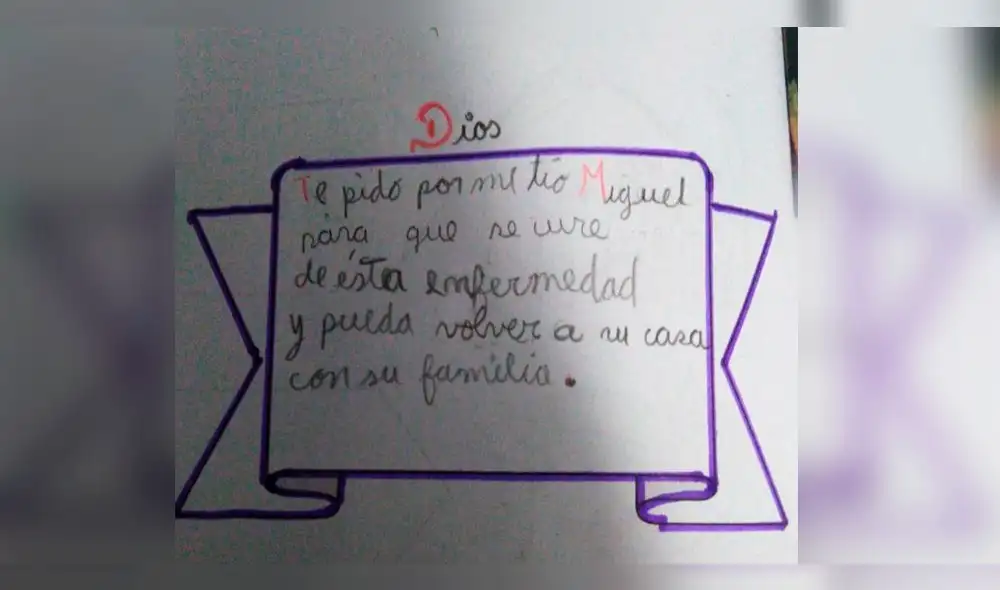 Dios
Te pido por mi tío Miguel
para que se cure
de ésta enfermedad
y pueda volver a su casa
con su familia.